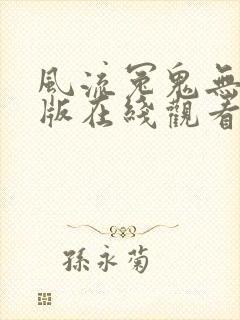 風流冤鬼無
版在綫觀看
孫永菊